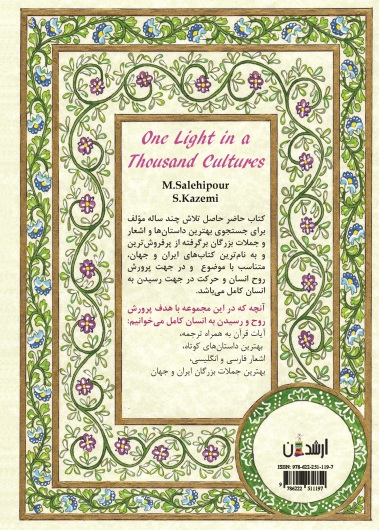 One Light in a
Thousand Cultures
M.Salehipour
S.Kazemi
کتاب حاضر حاصل تلاش چند ساله مؤلف
برای جستجوی بهترین داستان‌ها و اشعار
و جملات بزرگان برگرفته از پرفروش‌ترین
و به نام‌ترین کتاب‌های ایران و جهان،
متناسب با موضوع و در جهت پرورش
روح انسان و حرکت در جهت رسیدن به
انسان کامل می‌باشد.
آنچه که در این مجموعه با هدف پرورش
روح و رسیدن به انسان کامل می‌خوانیم:
آیات قرآن به همراه ترجمه،
بهترین داستان‌های کوتاه،
اشعار فارسی و انگلیسی،
بهترین جملات بزرگان ایران و جهان
ارشدان
ISBN: 978-622-231-119-7
9 786222 311197